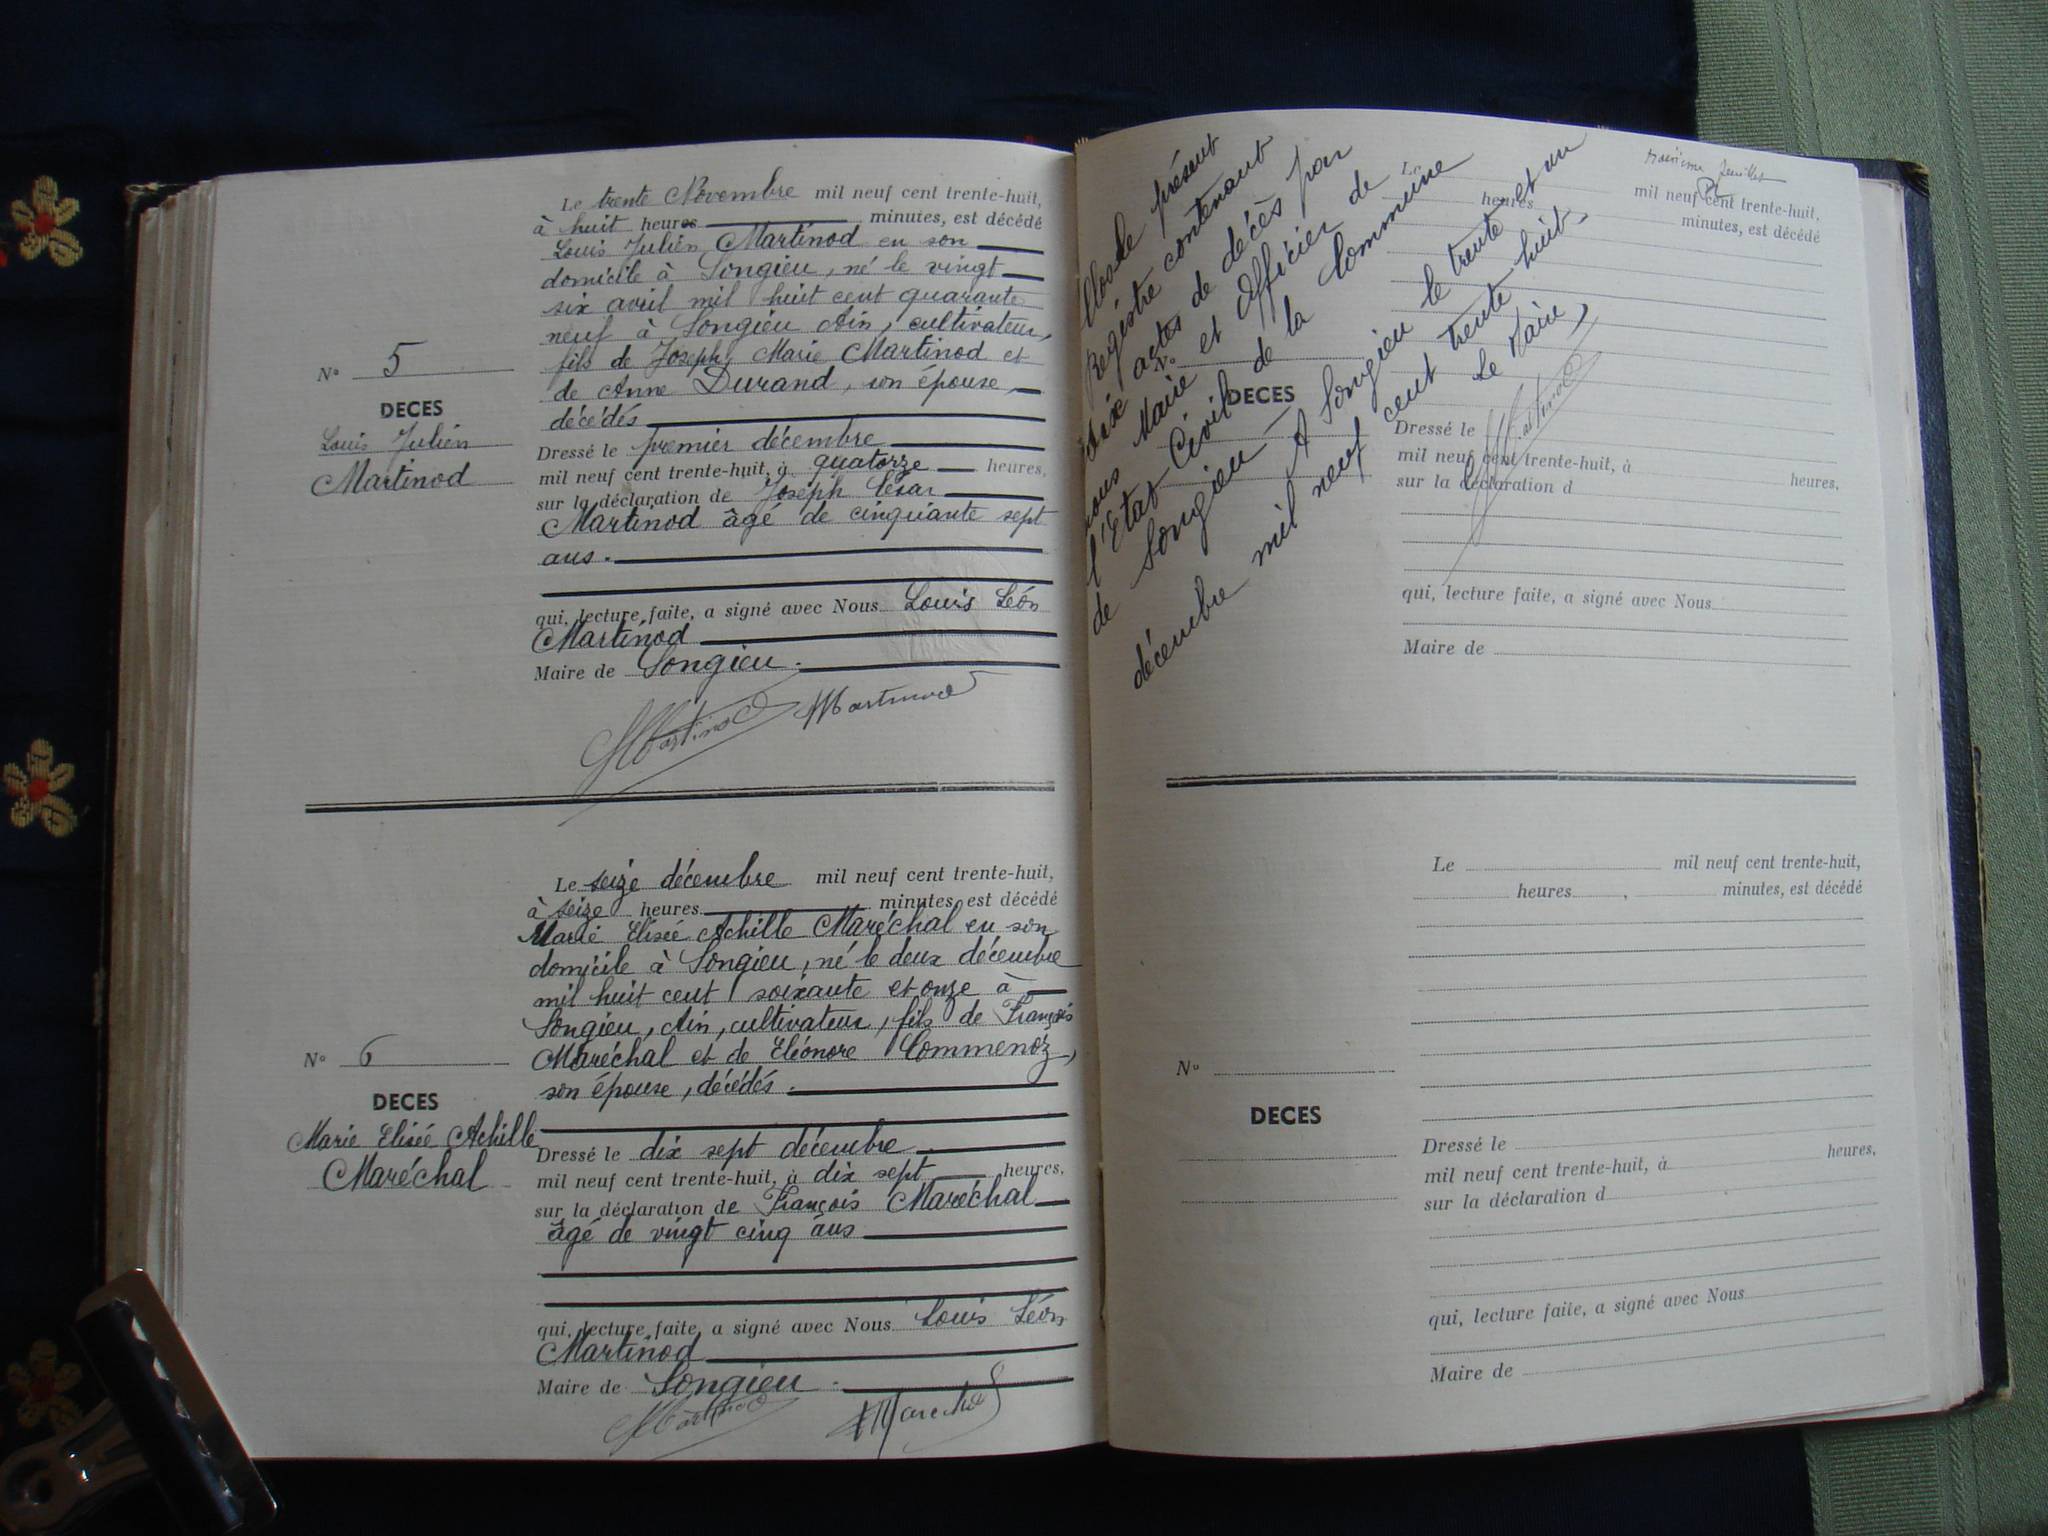 Le trente Novembre mil neuf cent trente-huit,
à huit heures minutes, est décédé
Louis Julien Martinod en son
domicile à Songieu, né le vingt
six avril mil huit cent quarante
neuf à Songieu Ain, cultivateur,
fils de Joseph Marie Martinod et
de Anne Durand, son épouse,
décédés
N° 5
DECES
Louis Julien
Martinod
Dressé le premier décembre
mil neuf cent trente-huit, à quatorze heures,
sur la déclaration de Joseph César
Martinod âgé de cinquante sept
ans.
qui, lecture faite, a signé avec Nous Louis Léon
Martinod
Maire de Songieu.
Martinod Martinod
Le seize décembre mil neuf cent trente-huit,
à seize heures minutes, est décédé
Marie Elisée Achille Maréchal en son
domicile à Songieu, né le deux décembre
mil huit cent soixante et onze à
Songieu, Ain, cultivateur, fils de François
Maréchal et de Eléonore Commenoz,
son épouse, décédés.
N° 6
DECES
Marie Elisée Achille
Maréchal
Dressé le dix sept décembre
mil neuf cent trente-huit, à dix sept heures,
sur la déclaration de François Maréchal
âgé de vingt cinq ans
qui, lecture faite, a signé avec Nous Louis Léon
Martinod
Maire de Songieu.
Martinod Marechal
le présent
Registre contenant
six actes de décès par
nous Maire et Officier de
l'Etat Civil de la Commune
de Songieu A Songieu le trente et un
décembre mil neuf cent trente huit.
Le Maire,
Martinod
feuillet
Le mil neuf cent trente-huit,
heures minutes, est décédé
N°
DECES
Dressé le
mil neuf cent trente-huit, à heures,
sur la déclaration d
qui, lecture faite, a signé avec Nous
Maire de
Le mil neuf cent trente-huit,
heures, minutes, est décédé
N°
DECES
Dressé le
mil neuf cent trente-huit, à heures,
sur la déclaration d
qui, lecture faite, a signé avec Nous
Maire de